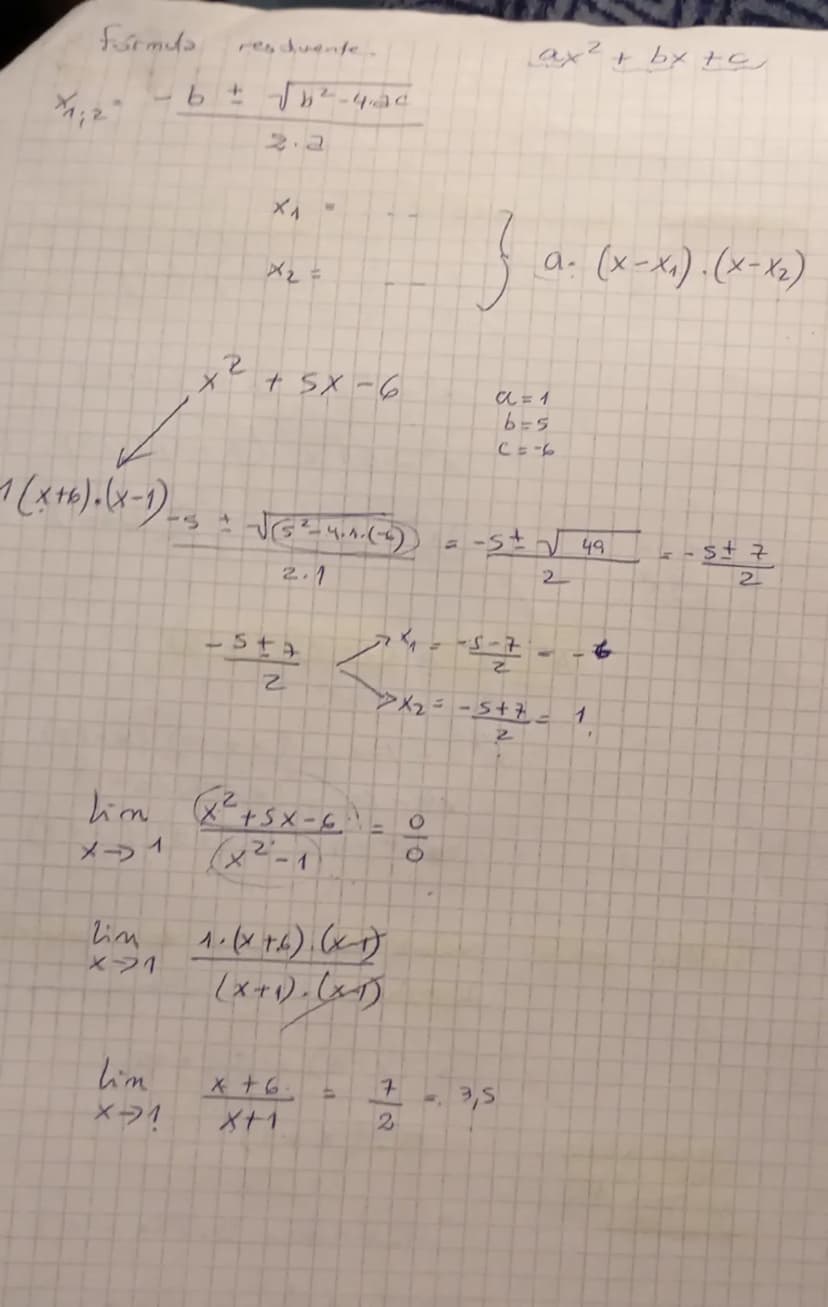 fórmula resolvente.
ax² + bx + c
x₁;₂ = -b ± √b²-4.ac / 2.a
x₁ = --
x₂ = --
} a. (x-x₁).(x-x₂)
x² + 5x - 6
a=1
b=5
c=-6
1(x+6).(x-1)
-5 ± √(5²-4.1.(-6)) / 2.1 = -5± √49 / 2 = -5± 7 / 2
-5±7 / 2
x₁ = -5-7 / 2 = -6
x₂ = -5+7 / 2 = 1.
lim x→1 (x²+5x-6) / (x²-1) = 0/0
lim x→1 1.(x+6).(x-1) / (x+1).(x-1)
lim x→1 x+6 / x+1 = 7/2 = 3,5